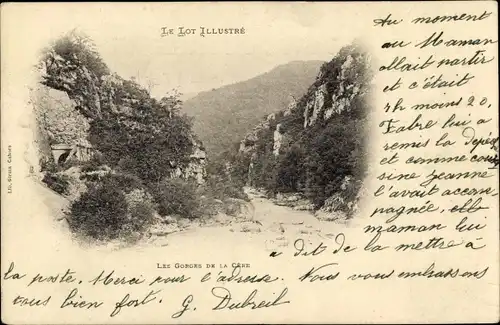 LE LOT ILLUSTRÉ
Au moment
au Maman
allait partir
et c'était
7h moins 20,
Fabre lui a
remis la dépê
et comme cous
sine Jeanne
l'avait accom-
pagnée, elle
maman lui
a dit de la mettre à
Lib. Girma Cahors
LES GORGES DE LA CÈRE
la poste. Merci pour l'adresse. Nous vous embrassons
tous bien fort. G. Dubreil